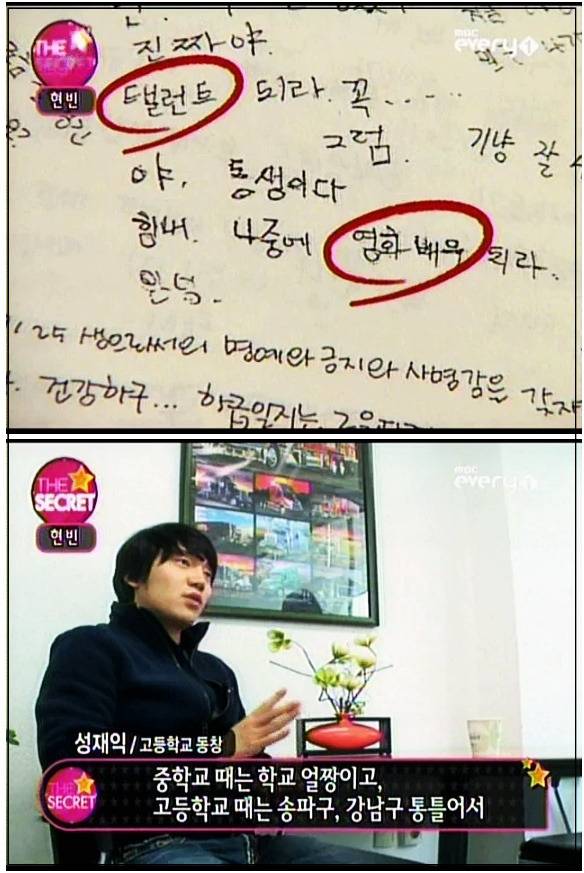 mbc every1
THE SECRET
현빈
진짜야.
탤런트 되라. 꼭.....
그럼. 기냥 잘
야, 동생이다
힘내. 나중에 영화배우 되라.
생으로써의 명예와 긍지와 사명감을 갖자
건강하구... 학급일지는
mbc every1
THE SECRET
현빈
성재익/고등학교 동창
THE SECRET
중학교 때는 학교 얼짱이고,
고등학교 때는 송파구, 강남구 통틀어서